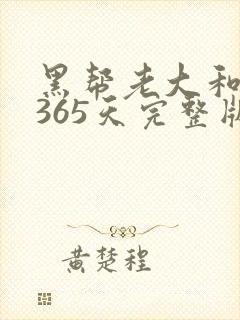 黑帮老大和
365天完整版
黄楚程